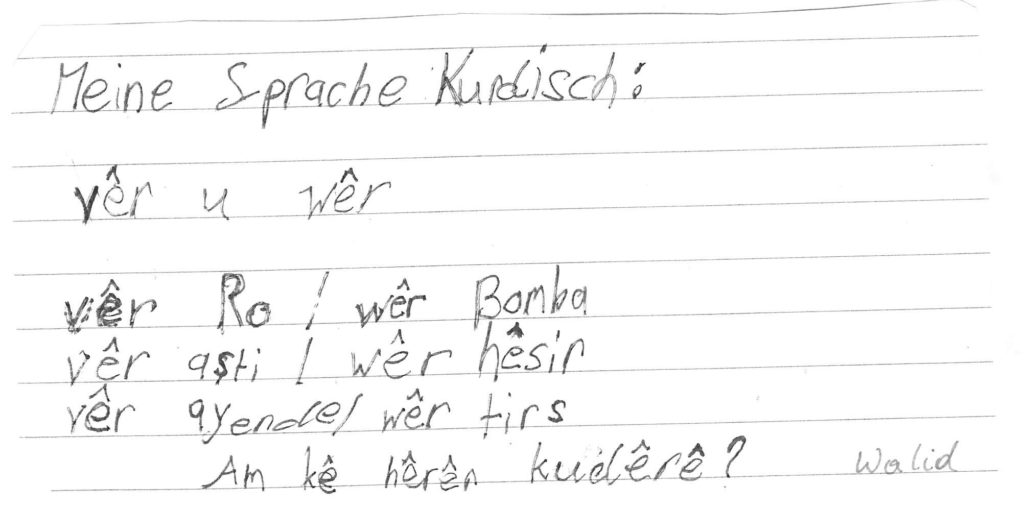 Meine Sprache Kurdisch:
vêr u wêr
vêr Ro / wêr Bomba
vêr aşti / wêr hêsir
vêr ayende / wêr tirs
Am kê hêrên kudêrê? Walid